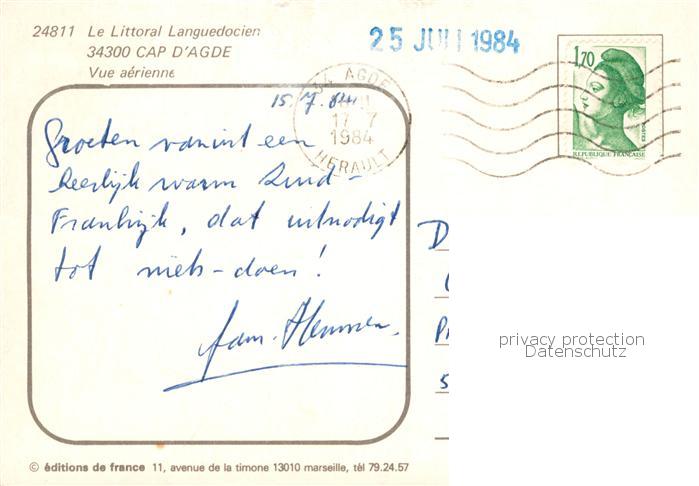 24811 Le Littoral Languedocien
34300 CAP D'AGDE
Vue aérienne
25 JUIL 1984
34 AGDE
17 - 7
1984
HERAULT
1,70
REPUBLIQUE FRANÇAISE
15.7.84
Groeten vanuit een
heerlijk warm Zuid-
Frankrijk, dat uitnodigt
tot niets-doen!
fam.
D
P
5
privacy protection
Datenschutz
© éditions de france 11, avenue de la timone 13010 marseille, tél 79.24.57